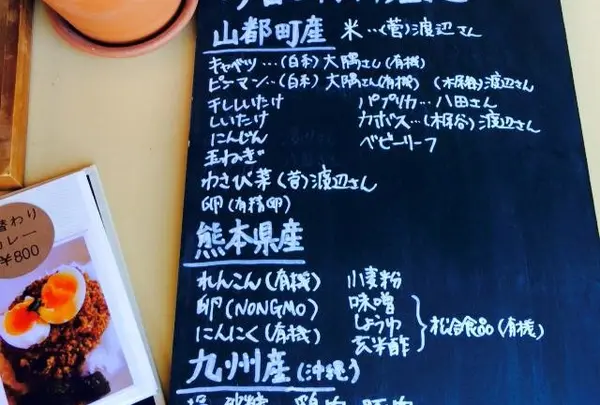 山都町産 米…(菅)渡辺さん
キャベツ…(白糸)大隅さん(有機)
ピーマン…(白糸)大隅さん(有機) (木原谷)渡辺さん
干ししいたけ パプリカ…八田さん
しいたけ カボス…(木原谷)渡辺さん
にんじん ベビーリーフ
玉ねぎ
わさび菜(菅)渡辺さん
卵(有精卵)
熊本県産
れんこん(有機) 小麦粉
卵(NONGMO) 味噌
にんにく(有機) しょうゆ 松合食品(有機)
玄米酢
九州産(沖縄)
替わり
カレー
¥800